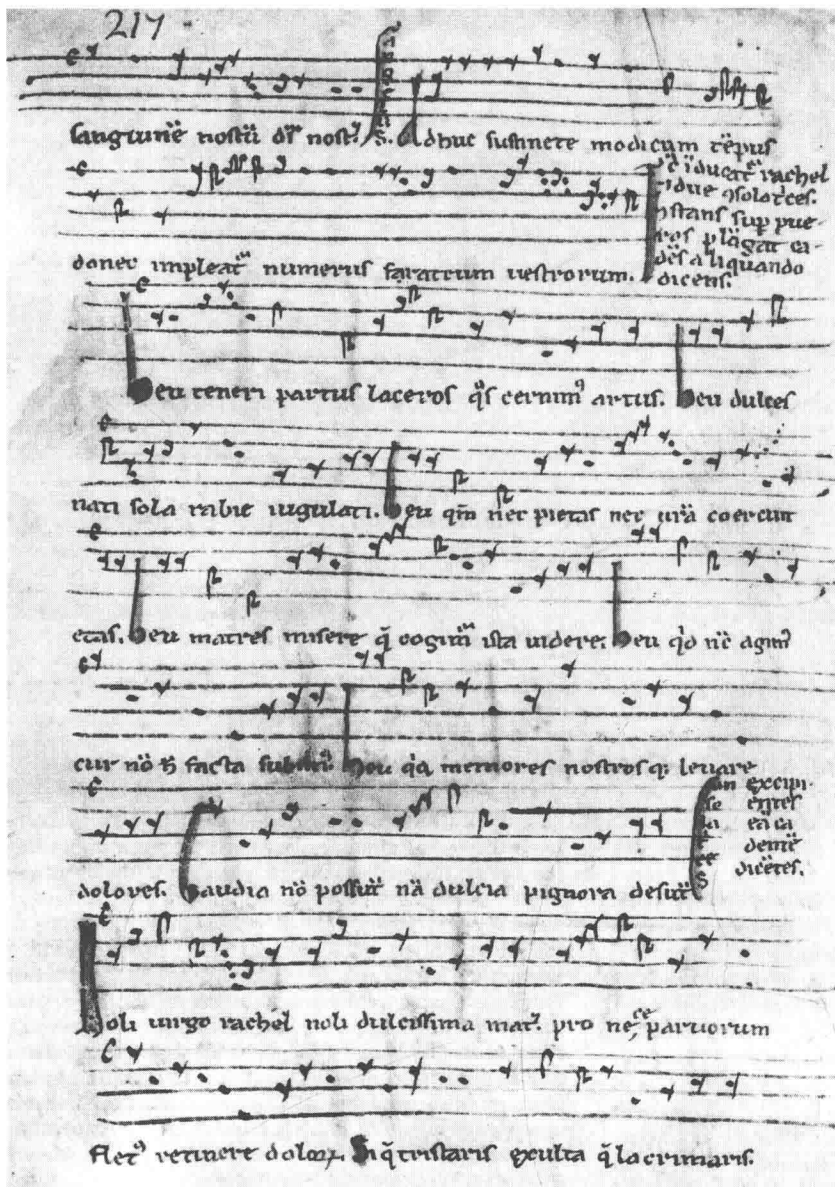 217
sanguinē nostrū dṡ nost̃. Adhuc sustinete modicum tēpus
c̄ īducat̃ rachel
due ꝯsolat̃ces.
stans sup pue-
ros plāgat ca-
dēs aliquando
donec impleat̃ numerus fratrum uestrorum. dicens.
heu teneri partus laceros qͦs cernimꝰ artus. heu dulces
nati sola rabie iugulati. heu qm̄ nec pietas nec ur̄a coercuit
etas. heu matres misere q̄ cogim̃ ista uidere. heu qͥd nc̄ agimꝰ
cur nō h̄ facta subimꝰ heu qͥa memores nostrosq; leuare
excipi-
entes
eā ca
dentē
dicētes.
dolores. Gaudia nō possūt nā dulcia pignora desūt
Noli uirgo rachel noli dulcissima mat̃ pro nece paruorum
fletꝰ retinere doloꝝ. Si q̄ tristaris exulta q̄ lacrimaris.